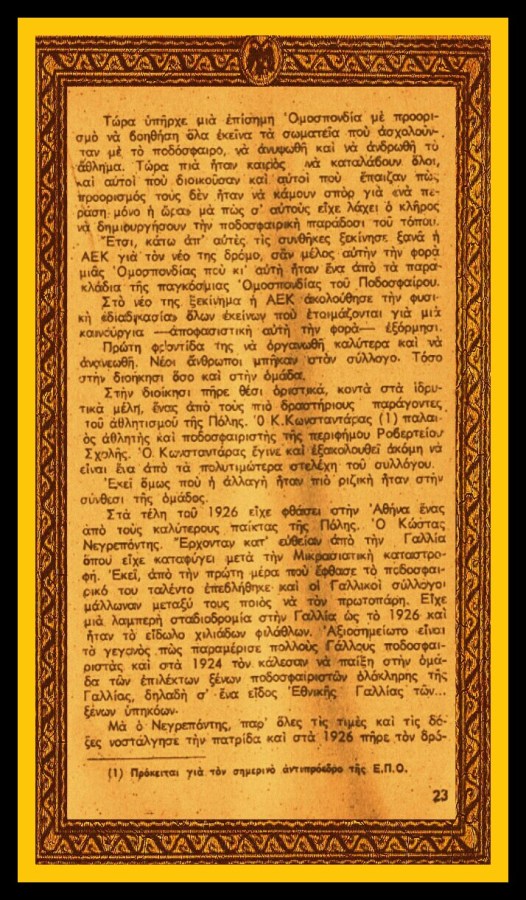 Τώρα ὑπῆρχε μιὰ ἐπίσημη Ὁμοσπονδία μὲ προορι-
σμὸ νὰ βοηθήση ὅλα ἐκεῖνα τὰ σωματεῖα ποὺ ἀσχολοῦν-
ταν μὲ τὸ ποδόσφαιρο, νὰ ἀνυψωθῆ καὶ νὰ ἀνδρωθῆ τὸ
ἄθλημα. Τώρα πιὰ ἦταν καιρὸς νὰ καταλάβουν ὅλοι,
καὶ αὐτοὶ ποὺ διοικοῦσαν καὶ αὐτοὶ ποὺ ἔπαιζαν πὼς
προορισμός τους δὲν ἦταν νὰ κάμουν σπὸρ γιὰ «νὰ πε-
ράση μόνο ἡ ὥρα» μὰ πὼς σ' αὐτοὺς εἶχε λάχει ὁ κλῆρος
νὰ δημιουργήσουν τὴν ποδοσφαιρικὴ παράδοσι τοῦ τόπου.
Ἔτσι, κάτω ἀπ' αὐτὲς τὶς συνθῆκες ξεκίνησε ξανὰ ἡ
ΑΕΚ γιὰ τὸν νέο της δρόμο, σὰν μέλος αὐτὴν τὴν φορὰ
μιᾶς Ὁμοσπονδίας ποὺ κι' αὐτὴ ἦταν ἕνα ἀπὸ τὰ παρα-
κλάδια τῆς παγκόσμιας Ὁμοσπονδίας τοῦ Ποδοσφαίρου.
Στὸ νέο της ξεκίνημα ἡ ΑΕΚ ἀκολούθησε τὴν φυσι-
κὴ «διαδικασία» ὅλων ἐκείνων ποὺ ἑτοιμάζονται γιὰ μιὰ
καινούργια —ἀποφασιστικὴ αὐτὴ τὴν φορὰ— ἐξόρμησι.
Πρώτη φροντίδα της νὰ ὀργανωθῆ καλύτερα καὶ νὰ
ἀνανεωθῆ. Νέοι ἄνθρωποι μπῆκαν στὸν σύλλογο. Τόσο
στὴν διοίκησι ὅσο καὶ στὴν ὁμάδα.
Στὴν διοίκησι πῆρε θέσι ὁριστικά, κοντὰ στὰ ἱδρυ-
τικὰ μέλη, ἕνας ἀπὸ τοὺς πιὸ δραστήριους παράγοντες
τοῦ ἀθλητισμοῦ τῆς Πόλης. Ὁ Κ.Κωνσταντάρας (1) παλαι-
ὸς ἀθλητὴς καὶ ποδοσφαιριστὴς τῆς περιφήμου Ροβερτείου
Σχολῆς. Ὁ Κωνσταντάρας ἔγινε καὶ ἐξακολουθεῖ ἀκόμη νὰ
εἶναι ἕνα ἀπὸ τὰ πολυτιμώτερα στελέχη τοῦ συλλόγου.
Ἐκεῖ ὅμως ποὺ ἡ ἀλλαγὴ ἦταν πιὸ ριζικὴ ἦταν στὴν
σύνθεσι τῆς ὁμάδος.
Στὰ τέλη τοῦ 1926 εἶχε φθάσει στὴν Ἀθήνα ἕνας
ἀπὸ τοὺς καλύτερους παίκτας τῆς Πόλης. Ὁ Κώστας
Νεγρεπόντης. Ἔρχονταν κατ' εὐθείαν ἀπὸ τὴν Γαλλία
ὅπου εἶχε καταφύγει μετὰ τὴν Μικρασιατικὴ καταστρο-
φή. Ἐκεῖ, ἀπὸ τὴν πρώτη μέρα ποὺ ἔφθασε τὸ ποδοσφαι-
ρικό του ταλέντο ἐπεβλήθηκε καὶ οἱ Γαλλικοὶ σύλλογοι
μάλλωναν μεταξύ τους ποιὸς νὰ τὸν πρωτοπάρη. Εἶχε
μιὰ λαμπερὴ σταδιοδρομία στὴν Γαλλία ὡς τὸ 1926 καὶ
ἦταν τὸ εἴδωλο χιλιάδων φιλάθλων. Ἀξιοσημείωτο εἶναι
τὸ γεγονὸς πὼς παραμέρισε πολλοὺς Γάλλους ποδοσφαι-
ριστὰς καὶ στὰ 1924 τὸν κάλεσαν νὰ παίξη στὴν ὁμά-
δα τῶν ἐπιλέκτων ξένων ποδοσφαιριστῶν ὁλόκληρης τῆς
Γαλλίας, δηλαδὴ σ' ἕνα εἶδος Ἐθνικῆς Γαλλίας τῶν...
ξένων ὑπηκόων.
Μὰ ὁ Νεγρεπόντης, παρ' ὅλες τὶς τιμὲς καὶ τὶς δό-
ξες νοστάλγησε τὴν πατρίδα καὶ στὰ 1926 πῆρε τὸν δρό-
(1) Πρόκειται γιὰ τὸν σημερινὸ ἀντιπρόεδρο τῆς Ε.Π.Ο.
23